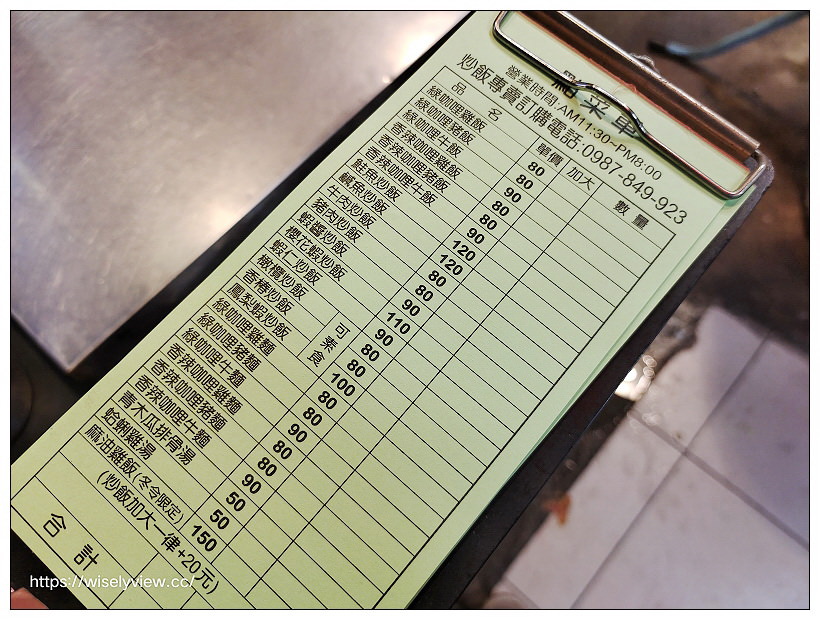 點菜單
營業時間:AM11:30~PM8:00
炒飯專賣訂購電話:0987-849-923
品 名 單價 加大 數量
綠咖哩雞飯 80
綠咖哩豬飯 80
綠咖哩牛飯 90
香辣咖哩雞飯 80
香辣咖哩豬飯 80
香辣咖哩牛飯 90
鮭魚炒飯 120
鹹魚炒飯 120
牛肉炒飯 80
豬肉炒飯 80
蝦醬炒飯 90
櫻花蝦炒飯 110
蝦仁炒飯 90
橄欖炒飯 可素食 80
香椿炒飯 80
鳳梨蝦炒飯 100
綠咖哩雞麵 80
綠咖哩豬麵 80
綠咖哩牛麵 90
香辣咖哩雞麵 80
香辣咖哩豬麵 80
香辣咖哩牛麵 90
青木瓜排骨湯 50
蛤蜊雞湯 50
麻油雞飯(冬令限定) 150
(炒飯加大一律+20元)
合 計
https://wiselyview.cc/